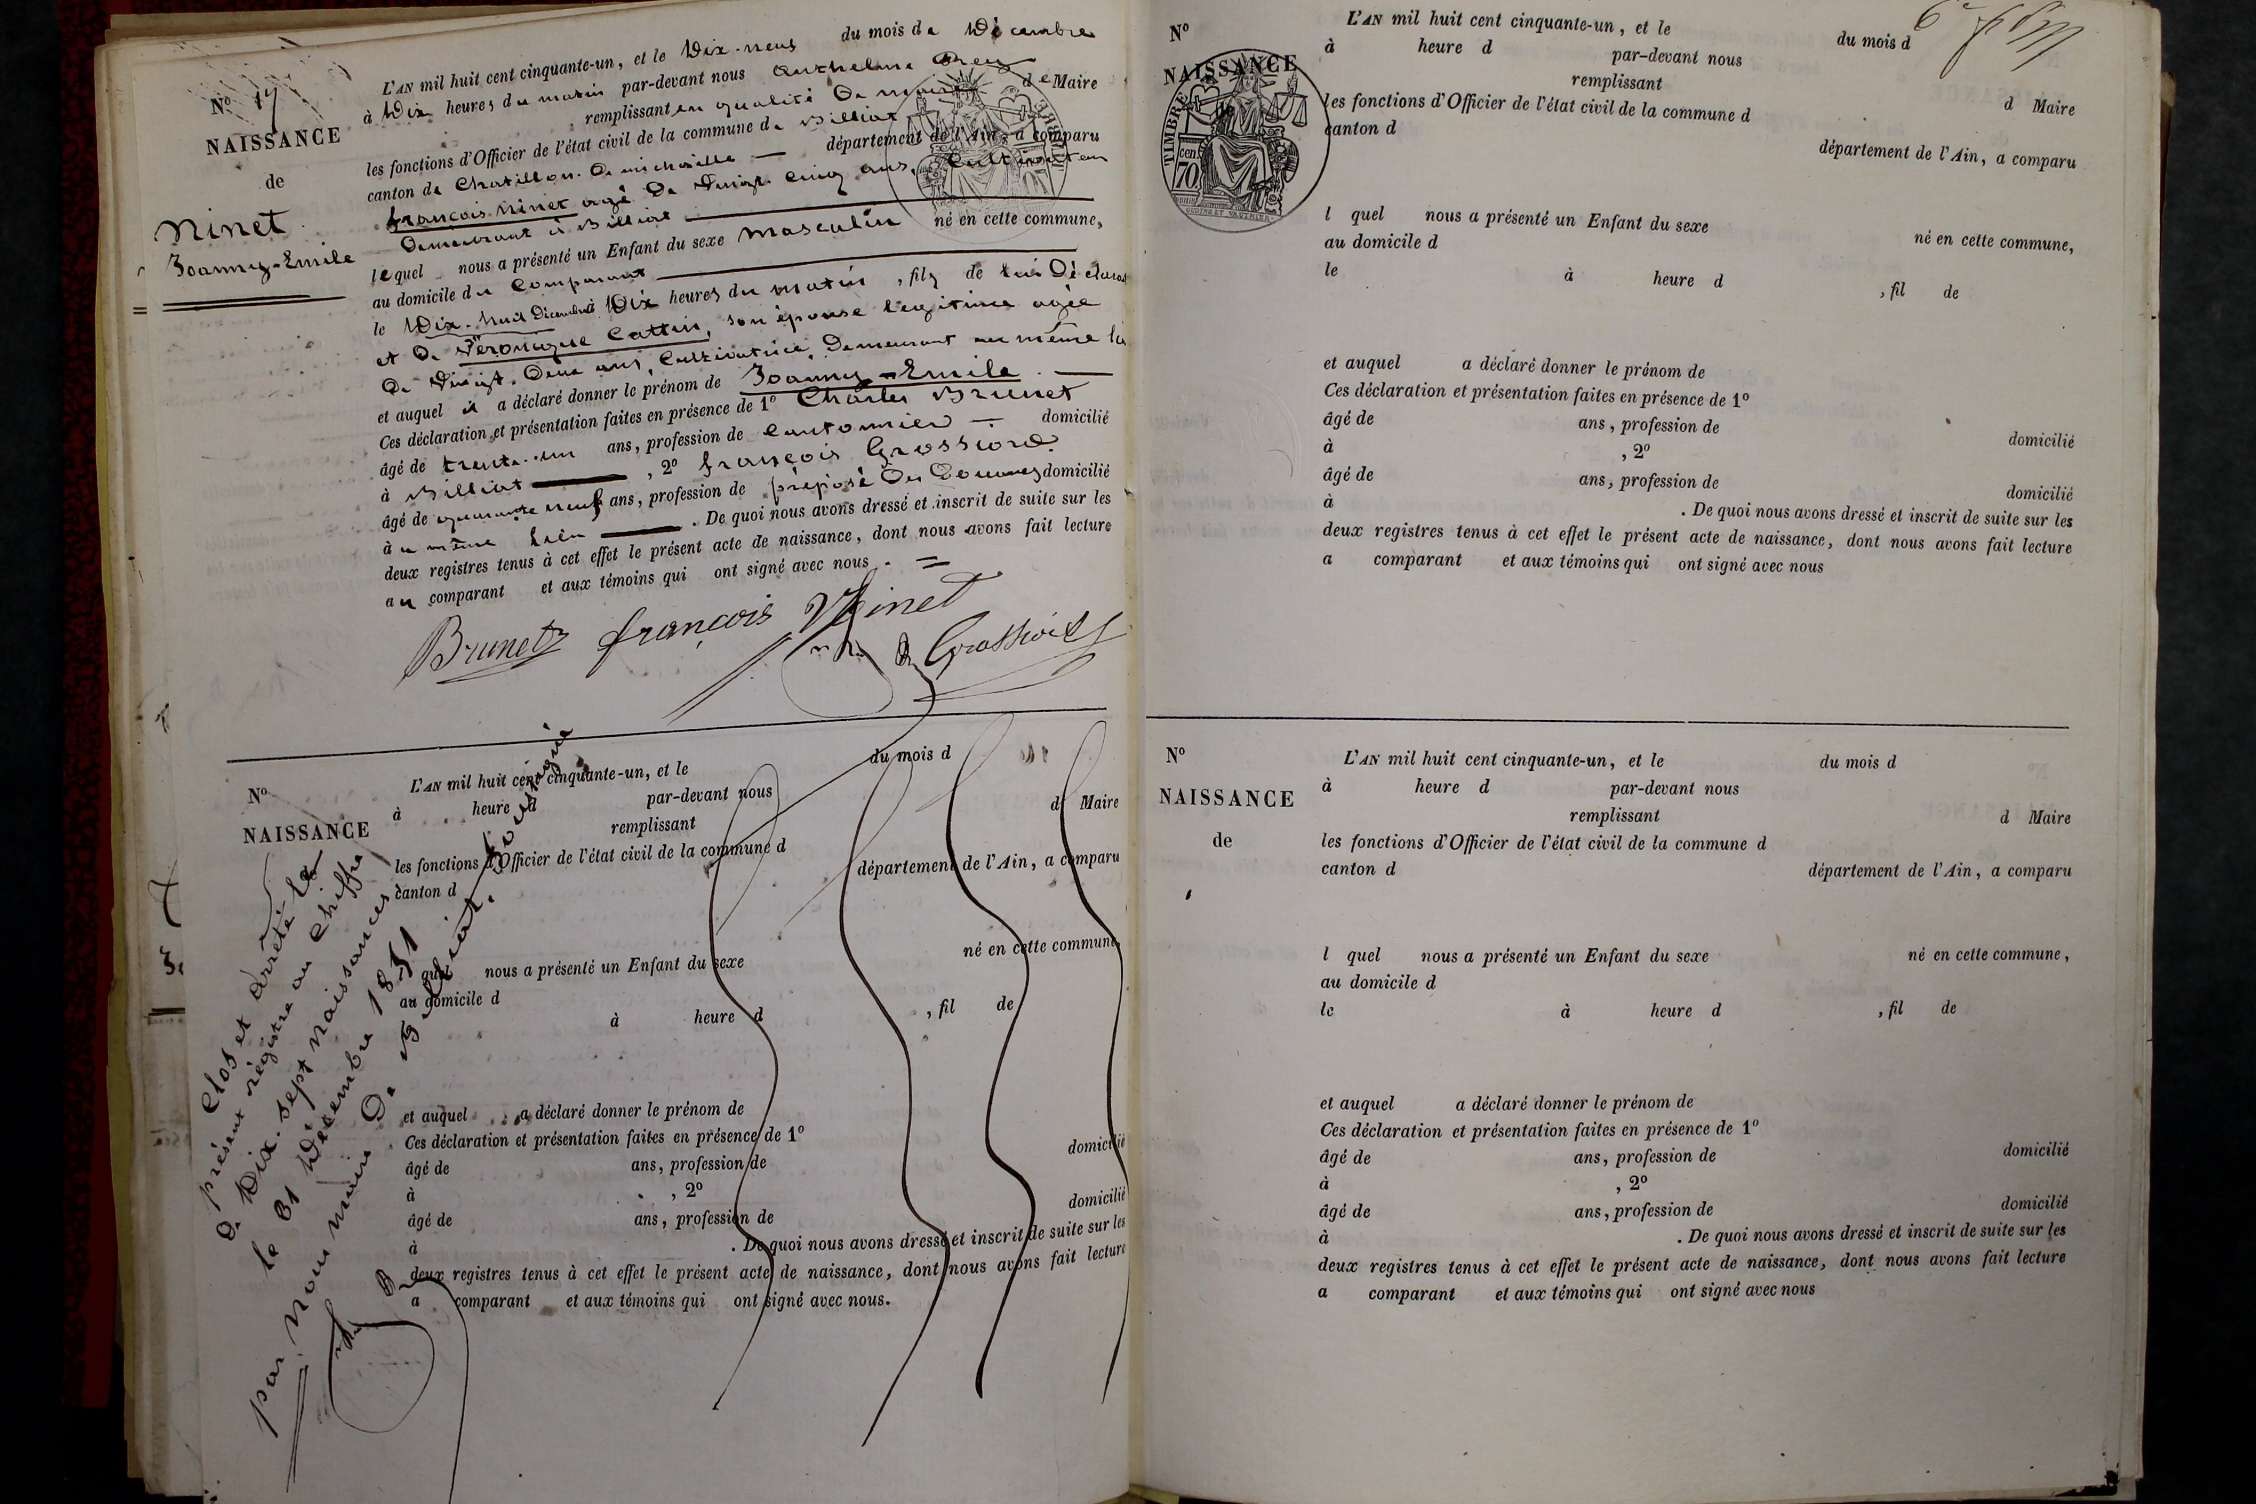 N° 17
NAISSANCE
de
Ninet
Joanny-Emile
L'AN mil huit cent cinquante-un, et le Dix-neuf du mois de Décembre
à Dix heures du matin par-devant nous Anthelme
remplissant en qualité De maire de Maire
les fonctions d'Officier de l'état civil de la commune de Billiat
canton de Chatillon-De michaille — département de l'Ain, a comparu
françois Ninet agé De Vingt-cinq ans, Cultivateur
Demeurant à Billiat
lequel nous a présenté un Enfant du sexe masculin né en cette commune,
au domicile du Comparant
le Dix-huit Décembre à Dix heures du matin, fils de lui Déclarant
et De Véronique Cattin, son épouse légitime agée
De Vingt-Deux ans, Cultivatrice, Demeurant au même lieu
et auquel il a déclaré donner le prénom de Joanny-Emile
Ces déclaration et présentation faites en présence de 1° Charles Brunet
âgé de trente-un ans, profession de Cantonnier — domicilié
à Billiat, 2° françois Grossiord
âgé de quarante neuf ans, profession de préposé Des Douanes domicilié
au même lieu. De quoi nous avons dressé et inscrit de suite sur les
deux registres tenus à cet effet le présent acte de naissance, dont nous avons fait lecture
au comparant et aux témoins qui ont signé avec nous.
Brunet françois Ninet
Grossiord
N°
NAISSANCE
L'AN mil huit cent cinquante-un, et le du mois d
à heure d par-devant nous
remplissant d Maire
les fonctions d'Officier de l'état civil de la commune d
canton d département de l'Ain, a comparu
quel nous a présenté un Enfant du sexe né en cette commune,
au domicile d
à heure d , fil de
et auquel a déclaré donner le prénom de
Ces déclaration et présentation faites en présence de 1°
âgé de ans, profession de domicilié
à , 2°
âgé de ans, profession de domicilié
à . De quoi nous avons dressé et inscrit de suite sur les
deux registres tenus à cet effet le présent acte de naissance, dont nous avons fait lecture
a comparant et aux témoins qui ont signé avec nous.
Clos et arrêté le
présent régistre au chiffre
De Dix-sept naissances
le 31 Décembre 1851
par nous maire De Billiat, soussigné
N°
NAISSANCE
TIMBRE
70 cen.
L'AN mil huit cent cinquante-un, et le du mois d
à heure d par-devant nous
remplissant d Maire
les fonctions d'Officier de l'état civil de la commune d
canton d département de l'Ain, a comparu
l quel nous a présenté un Enfant du sexe né en cette commune,
au domicile d
le à heure d , fil de
et auquel a déclaré donner le prénom de
Ces déclaration et présentation faites en présence de 1°
âgé de ans, profession de domicilié
à , 2°
âgé de ans, profession de domicilié
à . De quoi nous avons dressé et inscrit de suite sur les
deux registres tenus à cet effet le présent acte de naissance, dont nous avons fait lecture
a comparant et aux témoins qui ont signé avec nous
N°
NAISSANCE
de
L'AN mil huit cent cinquante-un, et le du mois d
à heure d par-devant nous
remplissant d Maire
les fonctions d'Officier de l'état civil de la commune d
canton d département de l'Ain, a comparu
l quel nous a présenté un Enfant du sexe né en cette commune,
au domicile d
le à heure d , fil de
et auquel a déclaré donner le prénom de
Ces déclaration et présentation faites en présence de 1°
âgé de ans, profession de domicilié
à , 2°
âgé de ans, profession de domicilié
à . De quoi nous avons dressé et inscrit de suite sur les
deux registres tenus à cet effet le présent acte de naissance, dont nous avons fait lecture
a comparant et aux témoins qui ont signé avec nous